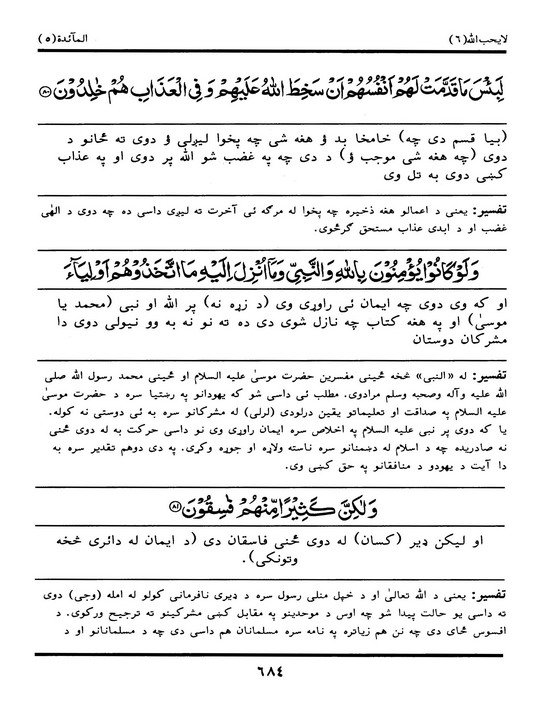 لايحب الله (٦)
المآئدة (٥)
لَبِئْسَ مَا قَدَّمَتْ لَهُمْ اَنْفُسُهُمْ اَنْ سَخِطَ اللهُ عَلَيْهِمْ وَ فِي الْعَذَابِ هُمْ خٰلِدُوْنَ ﴿٨٠﴾
(بيا قسم دى چه) خامخا بد ؤ هغه شى چه پخوا ليږلى ؤ دوى ته ځانو د
دوى (چه هغه شى موجب ؤ) د دى چه په غضب شو الله پر دوى او په عذاب
كښى دوى به تل وى
تفسير: يعنى د اعمالو هغه ذخيره چه پخوا له مرګه ئى آخرت ته ليږى داسى ده چه دوى د الهٰى
غضب او د ابدى عذاب مستحق ګرځوى.
وَ لَوْ كَانُوْا يُؤْمِنُوْنَ بِاللهِ وَ النَّبِيِّ وَ مَآ اُنْزِلَ اِلَيْهِ مَا اتَّخَذُوْهُمْ اَوْلِيَآءَ
او كه وى دوى چه ايمان ئى راوړى وى (د زړه نه) پر الله او نبى (محمد يا
موسىٰ) او په هغه كتاب چه نازل شوى دى ده ته نو نه به وو نيولى دوى دا
مشركان دوستان
تفسير: له «النبى» څخه ځينى مفسرين حضرت موسىٰ عليه السلام او ځينى محمد رسول الله صلى
الله عليه وآله وصحبه وسلم مرادوى. مطلب ئى داسى شو كه يهودانو په رښتيا سره د حضرت موسىٰ
عليه السلام په صداقت او تعليماتو يقين درلودى (لرلى) له مشركانو سره به ئى دوستى نه كوله.
يا كه دوى پر نبى عليه السلام په اخلاص سره ايمان راوړى وى نو داسى حركت به له دوى ځنى
نه صادريده چه د اسلام له دښمنانو سره ناسته ولاړه او جوړه وكړى. په دى دوهم تقدير سره به
دا آيت د يهودو د منافقانو په حق كښى وى.
وَ لٰكِنَّ كَثِيْرًا مِّنْهُمْ فٰسِقُوْنَ ﴿٨١﴾
او ليكن ډير (كسان) له دوى ځنى فاسقان دى (د ايمان له دائرى څخه
وتونكى).
تفسير: يعنى د الله تعالىٰ او د خپل منلى رسول سره د ډيرى نافرمانى كولو له امله (وجى) دوى
ته داسى يو حالت پيدا شو چه اوس د موحدينو په مقابل كښى مشركينو ته ترجيح وركوى. د
افسوس ځاى دى چه نن هم زياتره په نامه سره مسلمانان هم داسى دى چه د مسلمانانو او د
٦٨٤